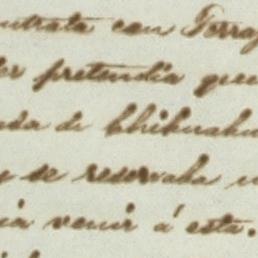 ontrata con Terraz
er pretendia que
da de Chihuahu
y se reservaba
ia venir á esta.